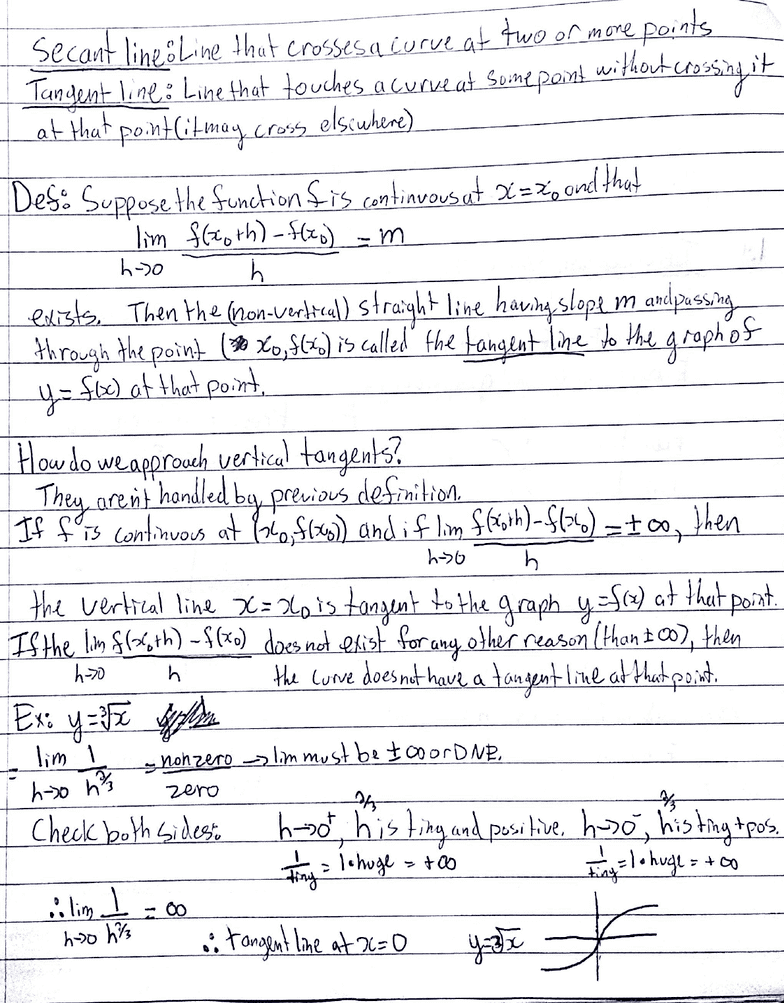 Secant line: Line that crosses a curve at two or more points
Tangent line: Line that touches a curve at some point without crossing it
at that point (it may cross elsewhere)
Def: Suppose the function f is continuous at x=x₀ and that
lim f(x₀+h)-f(x₀) = m
h→0 h
exists. Then the (non-vertical) straight line having slope m and passing
through the point ( x₀, f(x₀) is called the tangent line to the graph of
y = f(x) at that point.
How do we approach vertical tangents?
They aren't handled by previous definition.
If f is continuous at (x₀, f(x₀)) and if lim f(x₀+h)-f(x₀) = ±∞, then
h→0 h
the vertical line x=x₀ is tangent to the graph y=f(x) at that point.
If the lim f(x₀+h)-f(x₀) does not exist for any other reason (than ±∞), then
h→0 h the curve does not have a tangent line at that point.
Ex: y=∛x
= lim 1 = nonzero → lim must be ±∞ or DNE.
h→0 h^2/3 zero
Check both sides: h→0⁺, h^2/3 is tiny and positive. h→0⁻, h^2/3 is tiny + pos.
1/tiny = 1•huge = +∞ 1/tiny = 1•huge = +∞
∴ lim 1 = ∞
h→0 h^2/3 ∴ tangent line at x=0 y=∛x